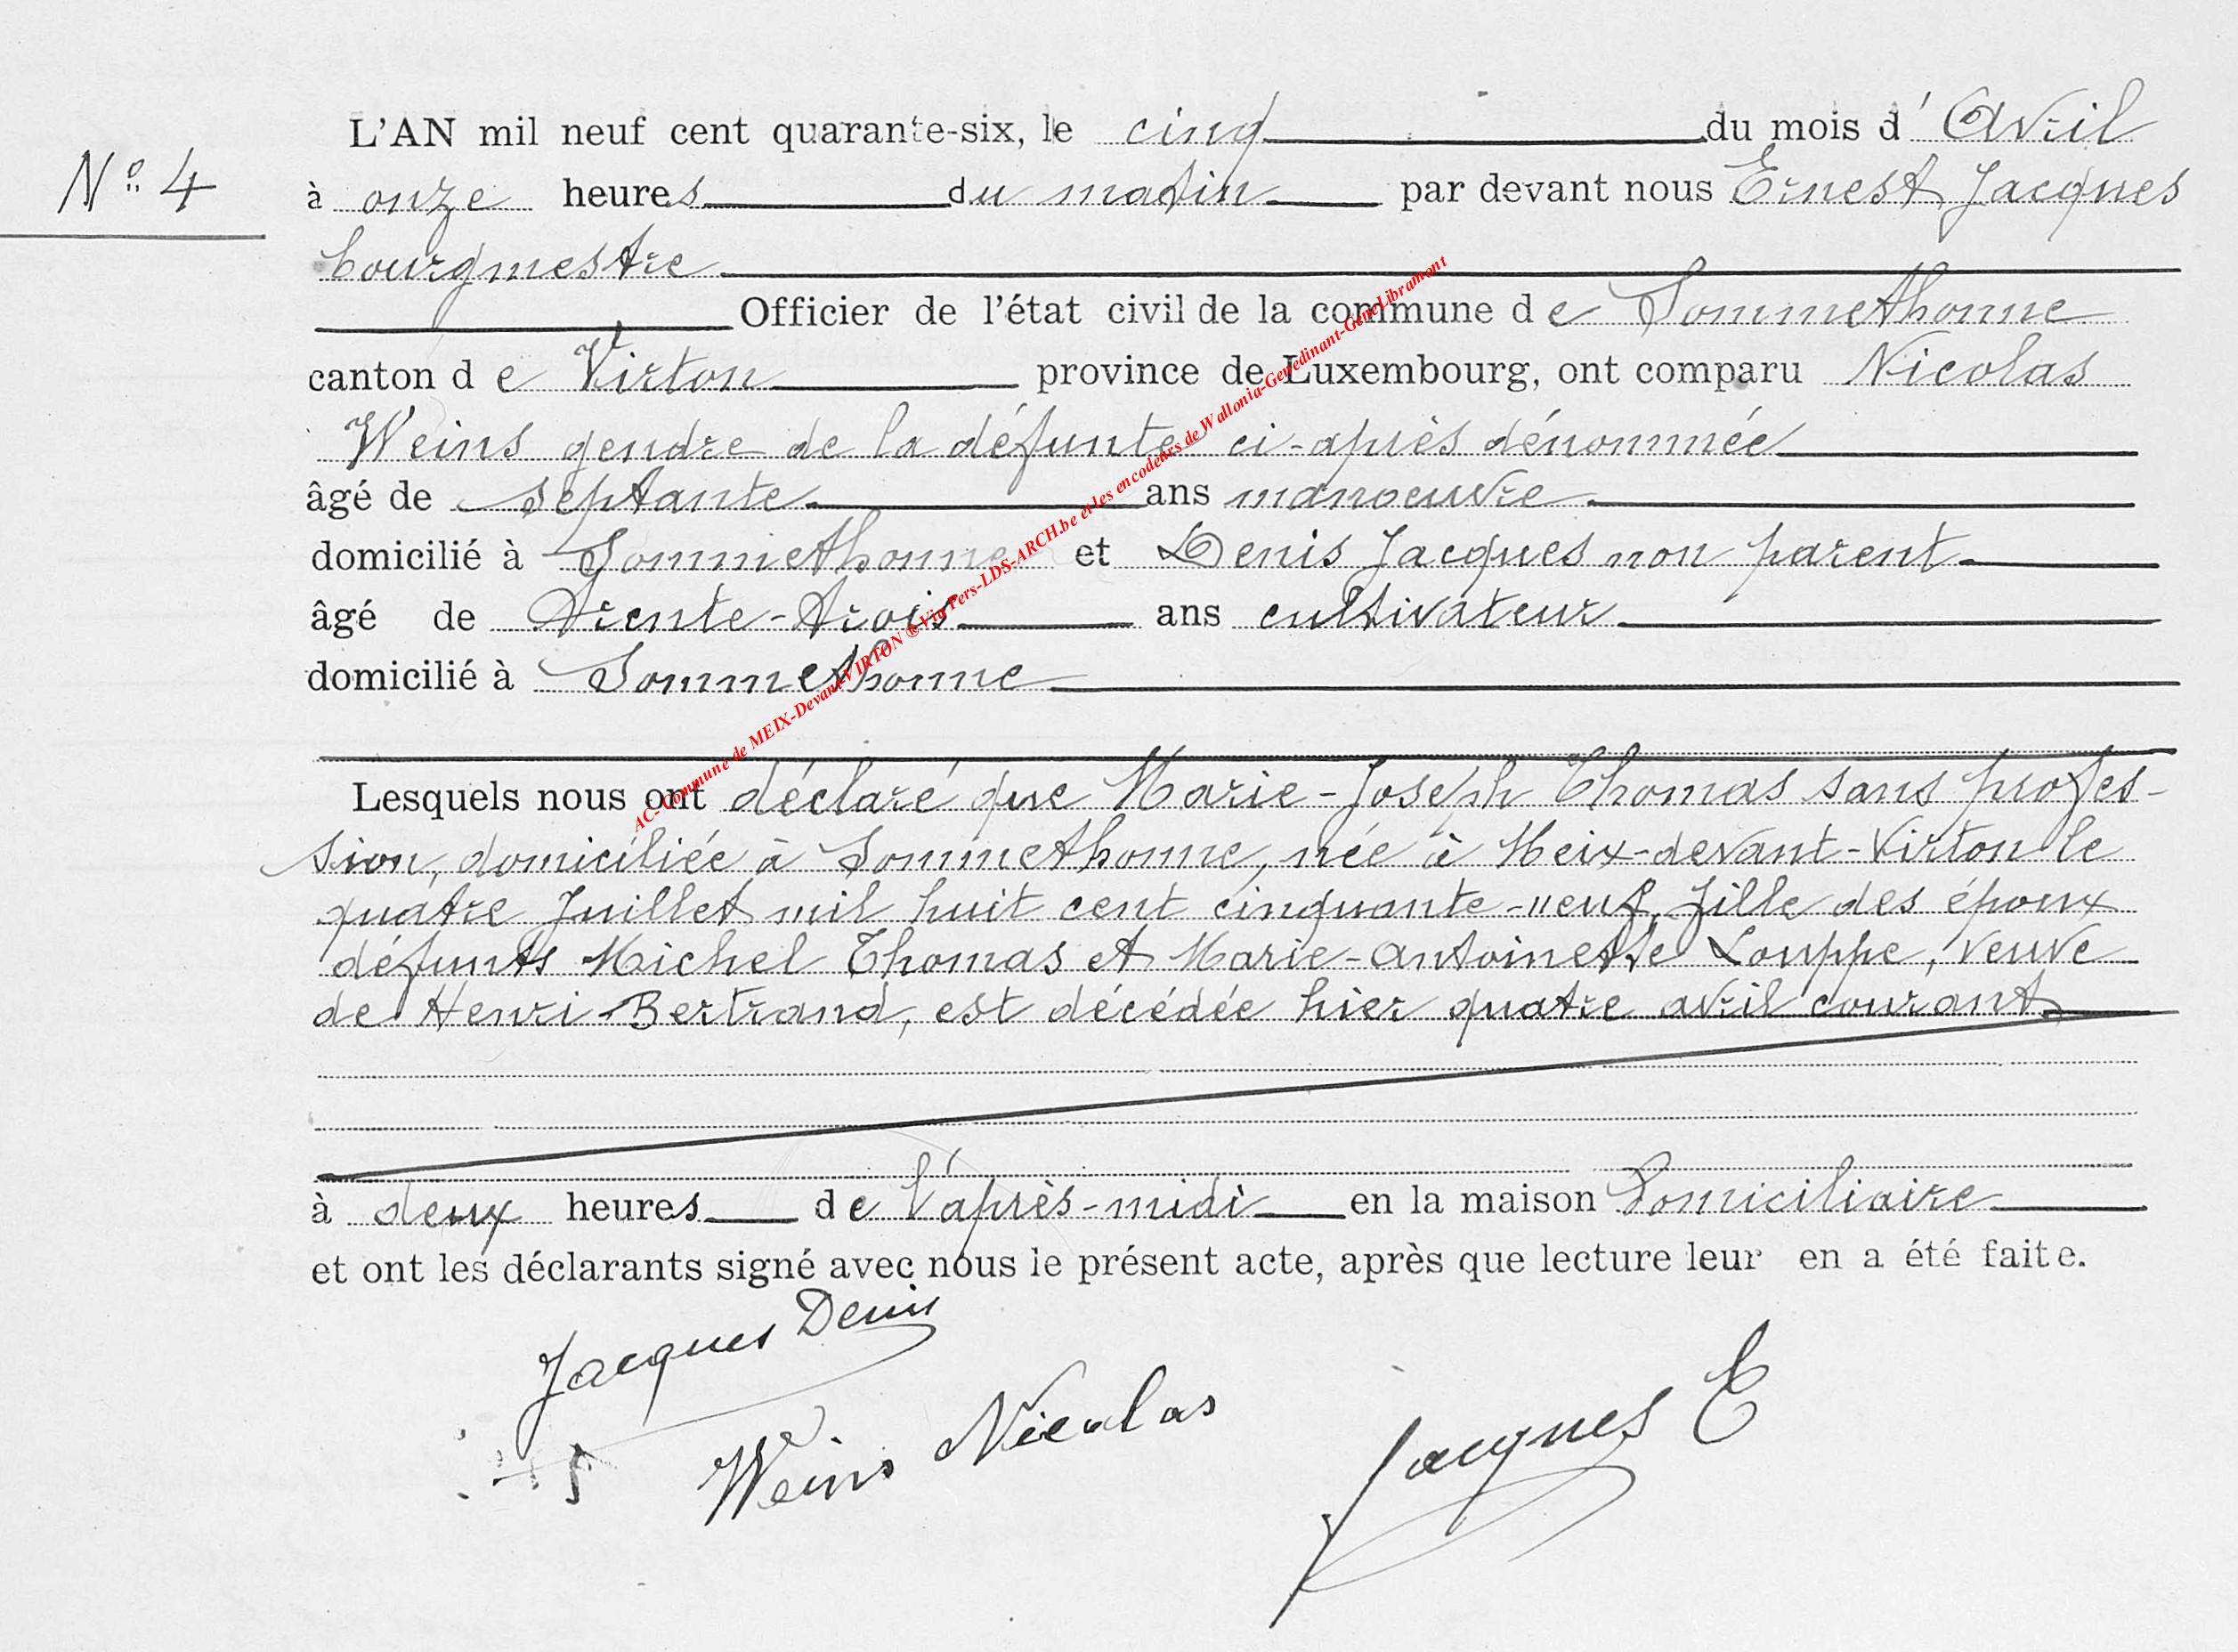 N° 4
L'AN mil neuf cent quarante-six, le cinq du mois d'Avril
à onze heures du matin par devant nous Ernest Jacques
bourgmestre
Officier de l'état civil de la commune de Sommethonne
canton de Virton province de Luxembourg, ont comparu Nicolas
Weins gendre de la défunte ci-après dénommée
âgé de septante ans manoeuvre
domicilié à Sommethonne et Denis Jacques non parent
âgé de trente-trois ans cultivateur
domicilié à Sommethonne
Lesquels nous ont déclaré que Marie-Joseph Thomas sans profes-
sion, domiciliée à Sommethonne, née à Meix-devant-Virton le
quatre Juillet mil huit cent cinquante-neuf, fille des époux
défunts Michel Thomas et Marie-Antoinette Louppe, veuve
de Henri Bertrand, est décédée hier quatre avril courant
à deux heures de l'après-midi en la maison Domiciliaire
et ont les déclarants signé avec nous le présent acte, après que lecture leur en a été faite.
Jacques Denis
Weins Nicolas
Jacques E
AC-Commune de MEIX-Devant-VIRTON ® Via Pers-LDS-ARCH.be et les encodeurs de Wallonia-Genedinant-GeneLibramont